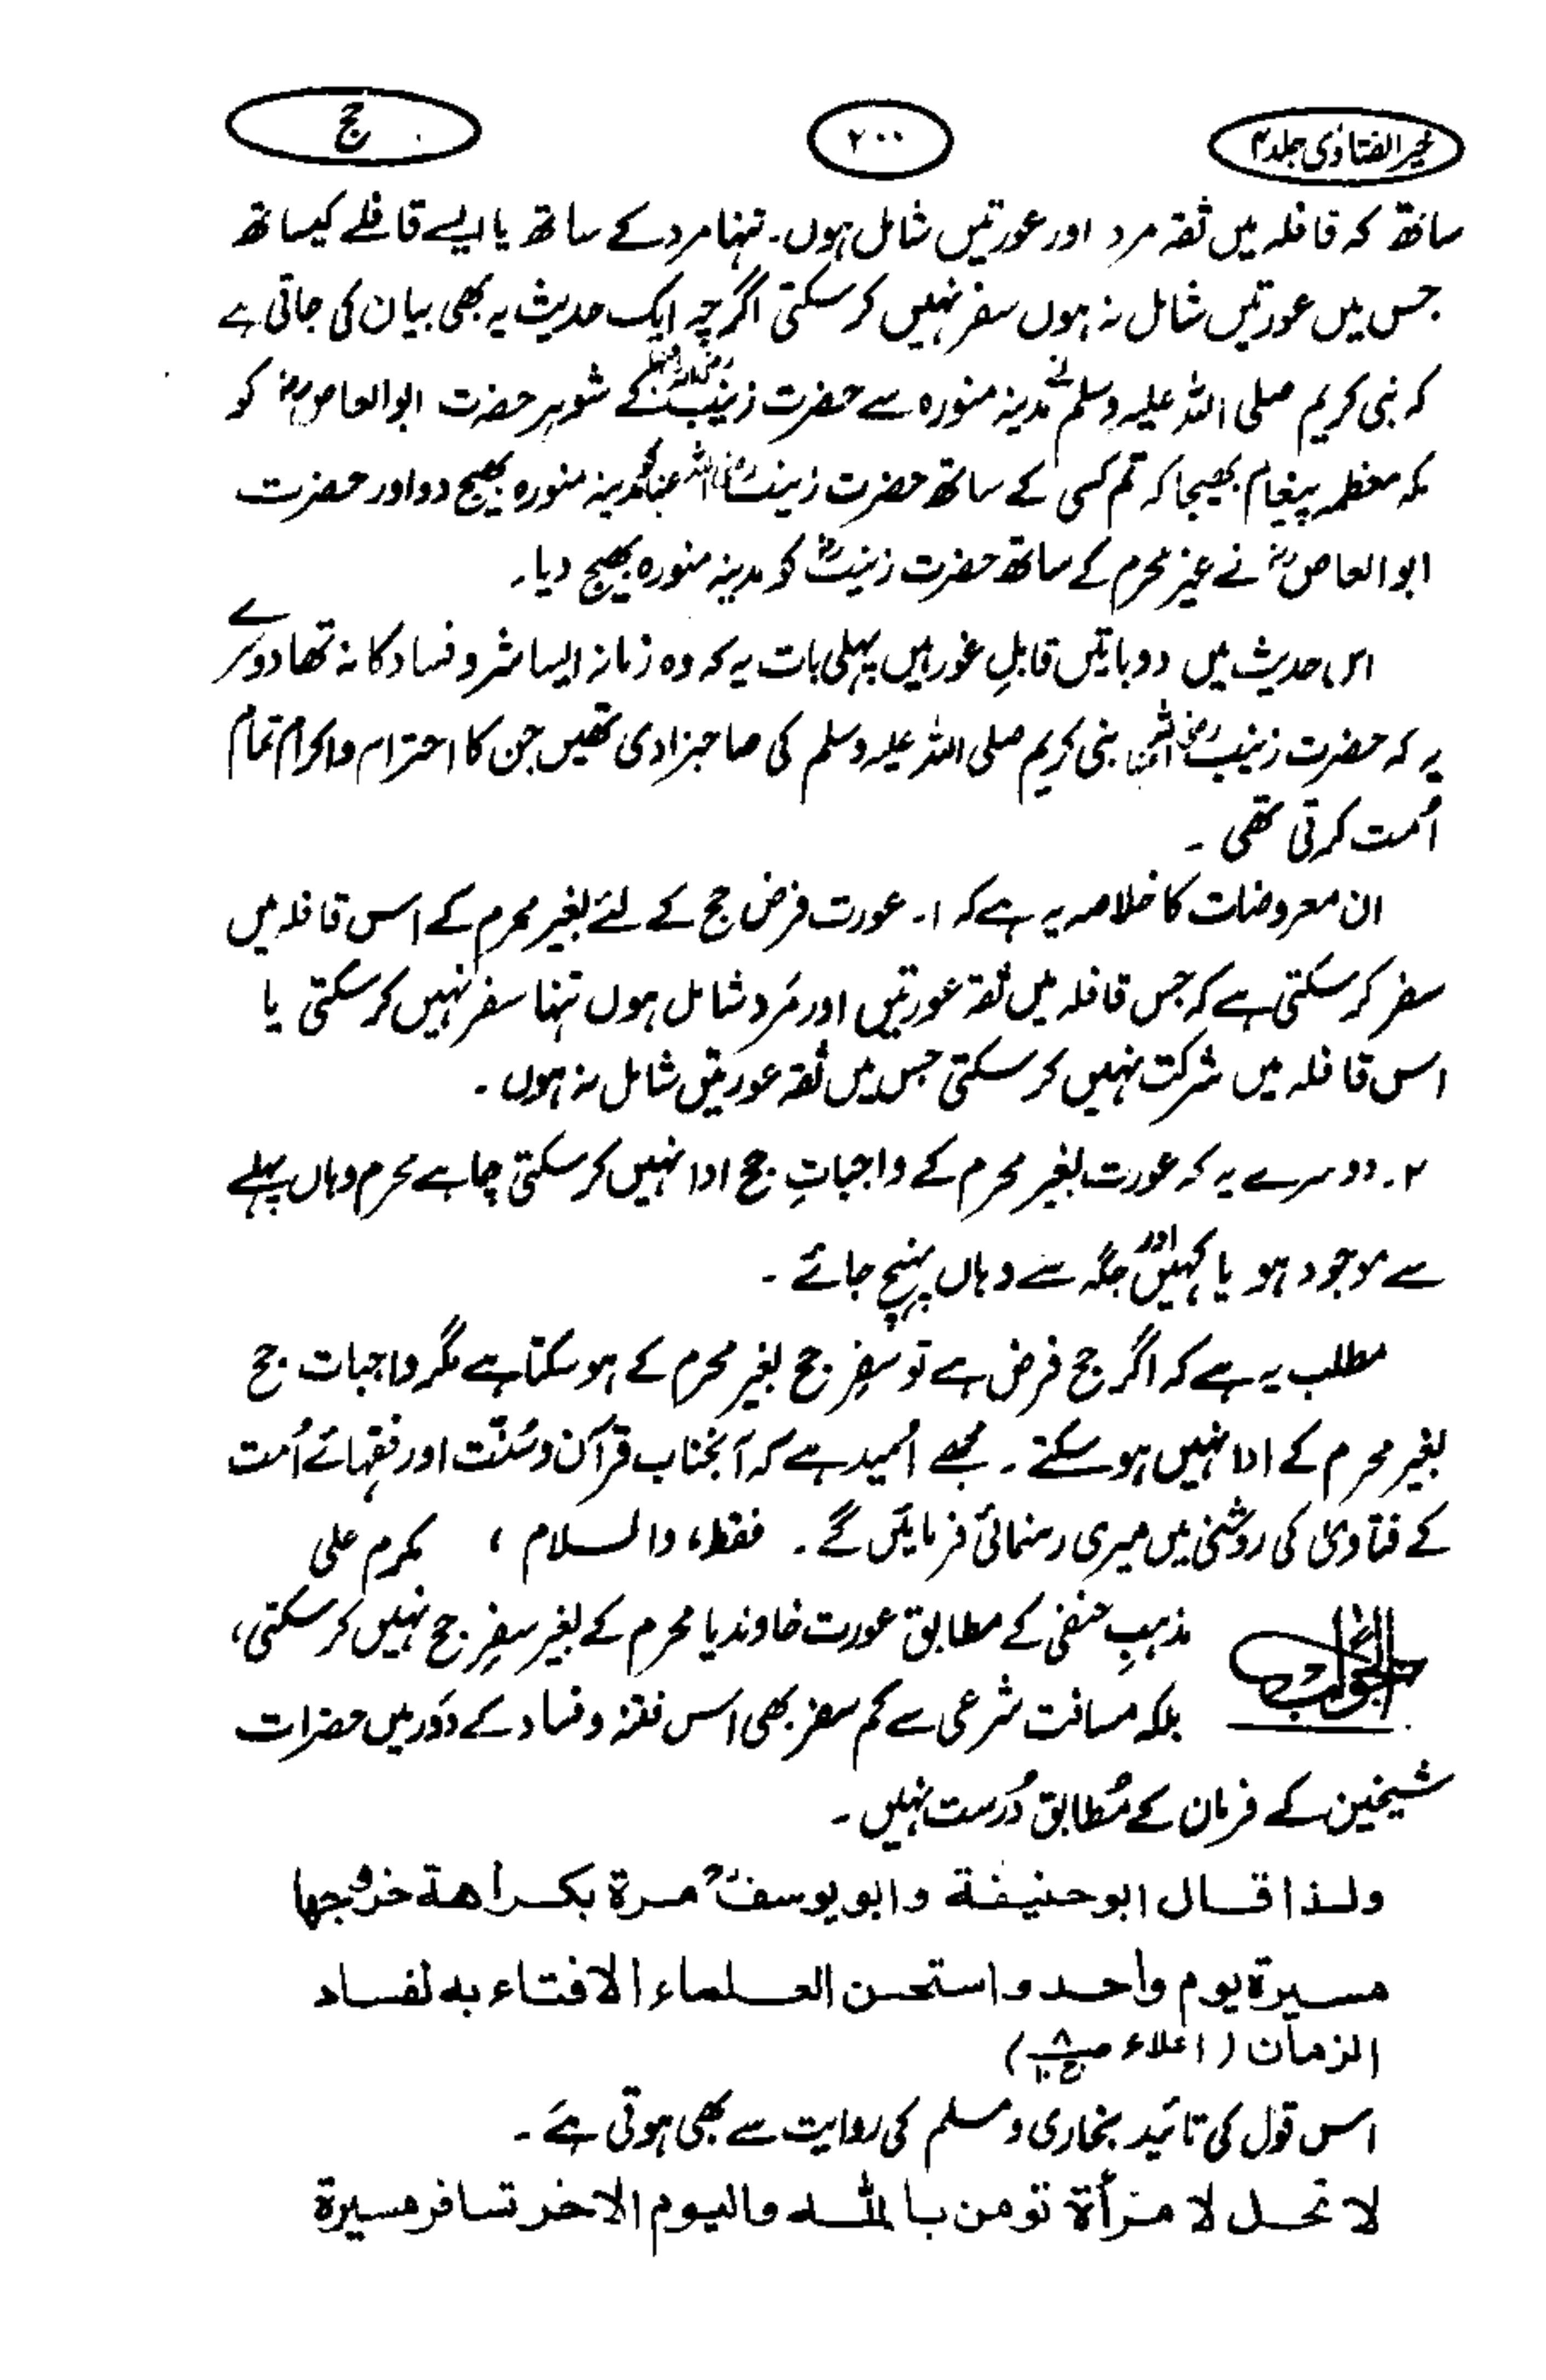 خیر الفتاوٰی جلد ۴
۲۰۰
حج
ساتھ کہ قافلہ میں ثقہ مرد اور عورتیں شامل ہوں۔ تنہا مرد کے ساتھ یا ایسے قافلے کیساتھ
جس میں عورتیں شامل نہ ہوں سفر نہیں کر سکتی اگرچہ ایک حدیث یہ بھی بیان کی جاتی ہے
کہ نبی کریم صلی اللہ علیہ وسلم نے مدینہ منورہ سے حضرت زینبؓ کے شوہر حضرت ابوالعاصؓ کو
مکہ معظمہ پیغام بھیجا کہ تم کسی کے ساتھ حضرت زینب رضی اللہ عنہا کو مدینہ منورہ بھیج دو اور حضرت
ابوالعاصؓ نے غیر محرم کے ساتھ حضرت زینبؓ کو مدینہ منورہ بھیج دیا۔
اس حدیث میں دو باتیں قابلِ غور ہیں پہلی بات یہ کہ وہ زمانہ ایسا شر و فساد کا نہ تھا دوسرے
یہ کہ حضرت زینب رضی اللہ عنہا نبی کریم صلی اللہ علیہ وسلم کی صاحبزادی تھیں جن کا احترام و اکرام تمام
اُمت کرتی تھی۔
ان معروضات کا خلاصہ یہ ہے کہ ۱۔ عورت فرض حج کے لئے بغیر محرم کے اس قافلہ میں
سفر کر سکتی ہے کہ جس قافلہ میں ثقہ عورتیں اور مَرد شامل ہوں تنہا سفر نہیں کر سکتی یا
اس قافلہ میں شرکت نہیں کر سکتی جس میں ثقہ عورتیں شامل نہ ہوں۔
۲۔ دوسرے یہ کہ عورت بغیر محرم کے واجباتِ حج ادا نہیں کر سکتی چاہے محرم وہاں پہلے
سے موجود ہو یا کہیں اور جگہ سے وہاں پہنچ جائے۔
مطلب یہ ہے کہ اگر حج فرض ہے تو سفرِ حج بغیر محرم کے ہو سکتا ہے مگر واجبات حج
بغیر محرم کے ادا نہیں ہو سکتے۔ مجھے اُمید ہے کہ آنجناب قرآن و سُنّت اور فقہائے اُمت
کے فتاویٰ کی روشنی میں میری رہنمائی فرمائیں گے۔ فقط، والسلام، مکرم علی
الجواب مذہبِ حنفی کے مطابق عورت خاوند یا محرم کے بغیر سفرِ حج نہیں کر سکتی،
بلکہ مسافت شرعی سے کم سفر بھی اس فتنہ و فساد کے دَور میں حضرات
شیخین کے فرمان کے مُطابق دُرست نہیں۔
ولذا قال ابوحنیفة وابویوسفؒ مرة بکراھة خروجھا
مسیرة یوم واحد واستحسن العلماء الافتاء بہ لفساد
الزمان (اعلاء ص۸ ج۱۰)
اس قول کی تائید بخاری و مسلم کی روایت سے بھی ہوتی ہے۔
لا تحل لامرأة تومن باللہ والیوم الاخر تسافر مسیرة